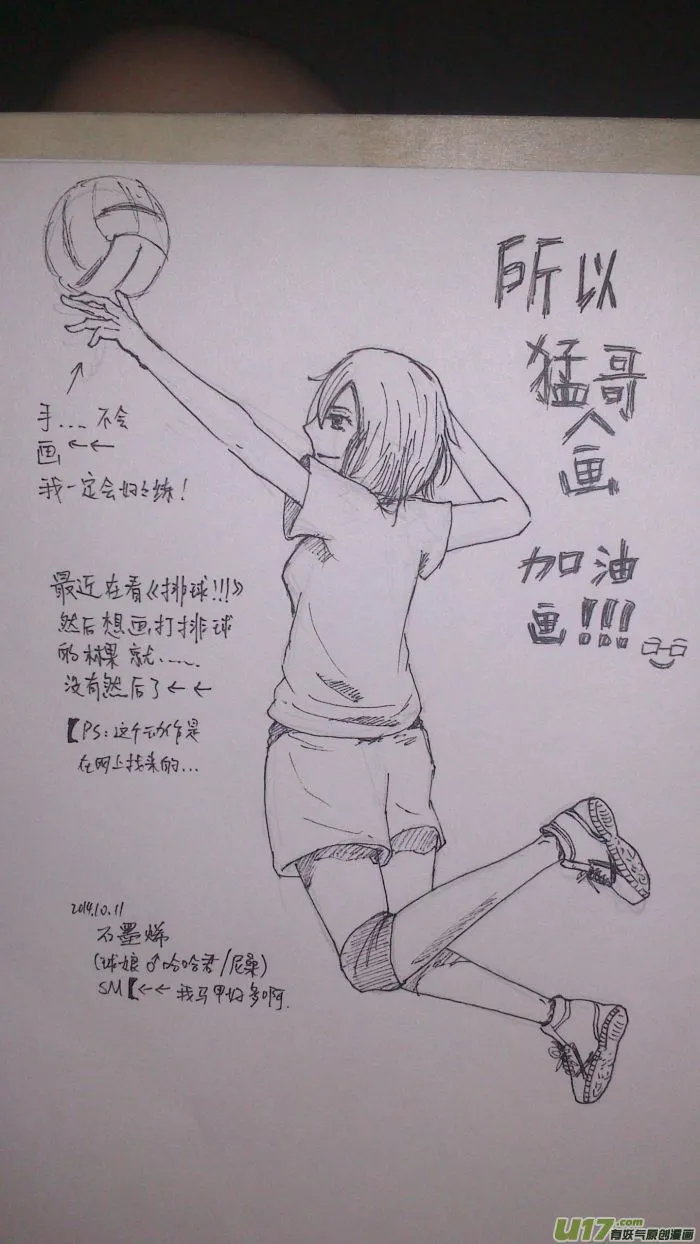 所以
猛哥
画
加油
画!!!
手...不会
画←←
我一定会好好练！
最近在看《排球!!!》
然后想画打排球
的林果就......
没有然后了←←
【PS:这个动作是
在网上找来的...
2014.10.11
石墨烯
(球娘♂哈哈君/尼桑)
SM【←←我马甲好多啊.
U17.com
有妖气原创漫画